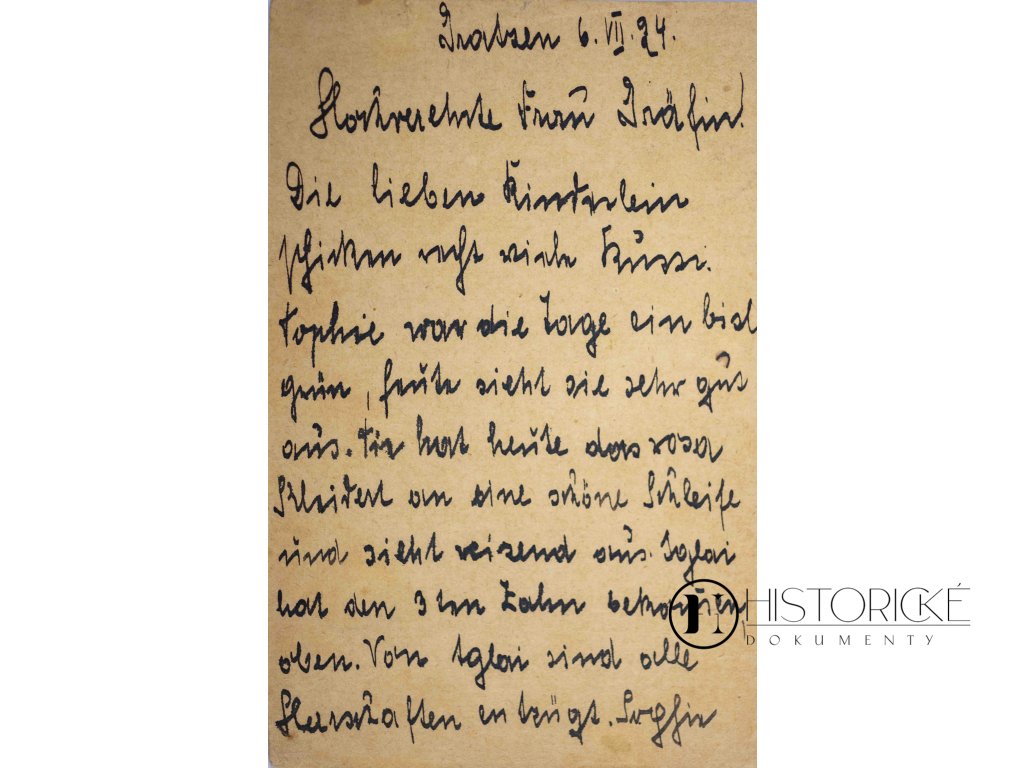 Gratzen 6. VII. 24.
Hochverehrte Frau Gräfin!
Die lieben Kinderlein
schicken recht viele Küsse.
Sophie war die Tage ein bisl
grün, heute sieht sie sehr gut
aus. Sie hat heute das rosa
Kleiderl an eine schöne Schleife
und sieht reizend aus.
hat den 3ten Zahn bekommen
oben. Von sind alle
Herrschaften entzückt. Sophie
HISTORICKÉ
DOKUMENTY